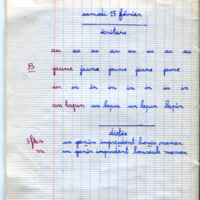 samedi 15 février
écriture
au au au au au au au au
B
jaune jaune jaune jaune jaune
in in in in in in in in
un lapin un lapin un lapin lapin
dictée
un gamin imprudent
un gamin imprudent bouscule maman